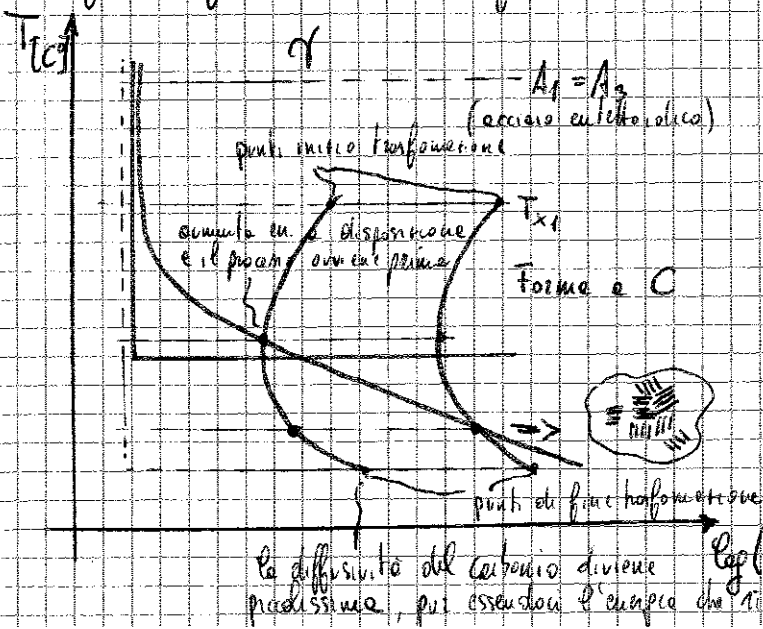 T[C°]
γ
A₁ = A₃
(acciaio eutettoidico)
punti inizio trasformazione
Tx₁
aumenta en. a disposizione
e il processo avviene prima
Forma a C
=>
punti di fine trasformazione
la diffusività del carbonio diviene
log(
piccolissima, pur essendoci l'energia che